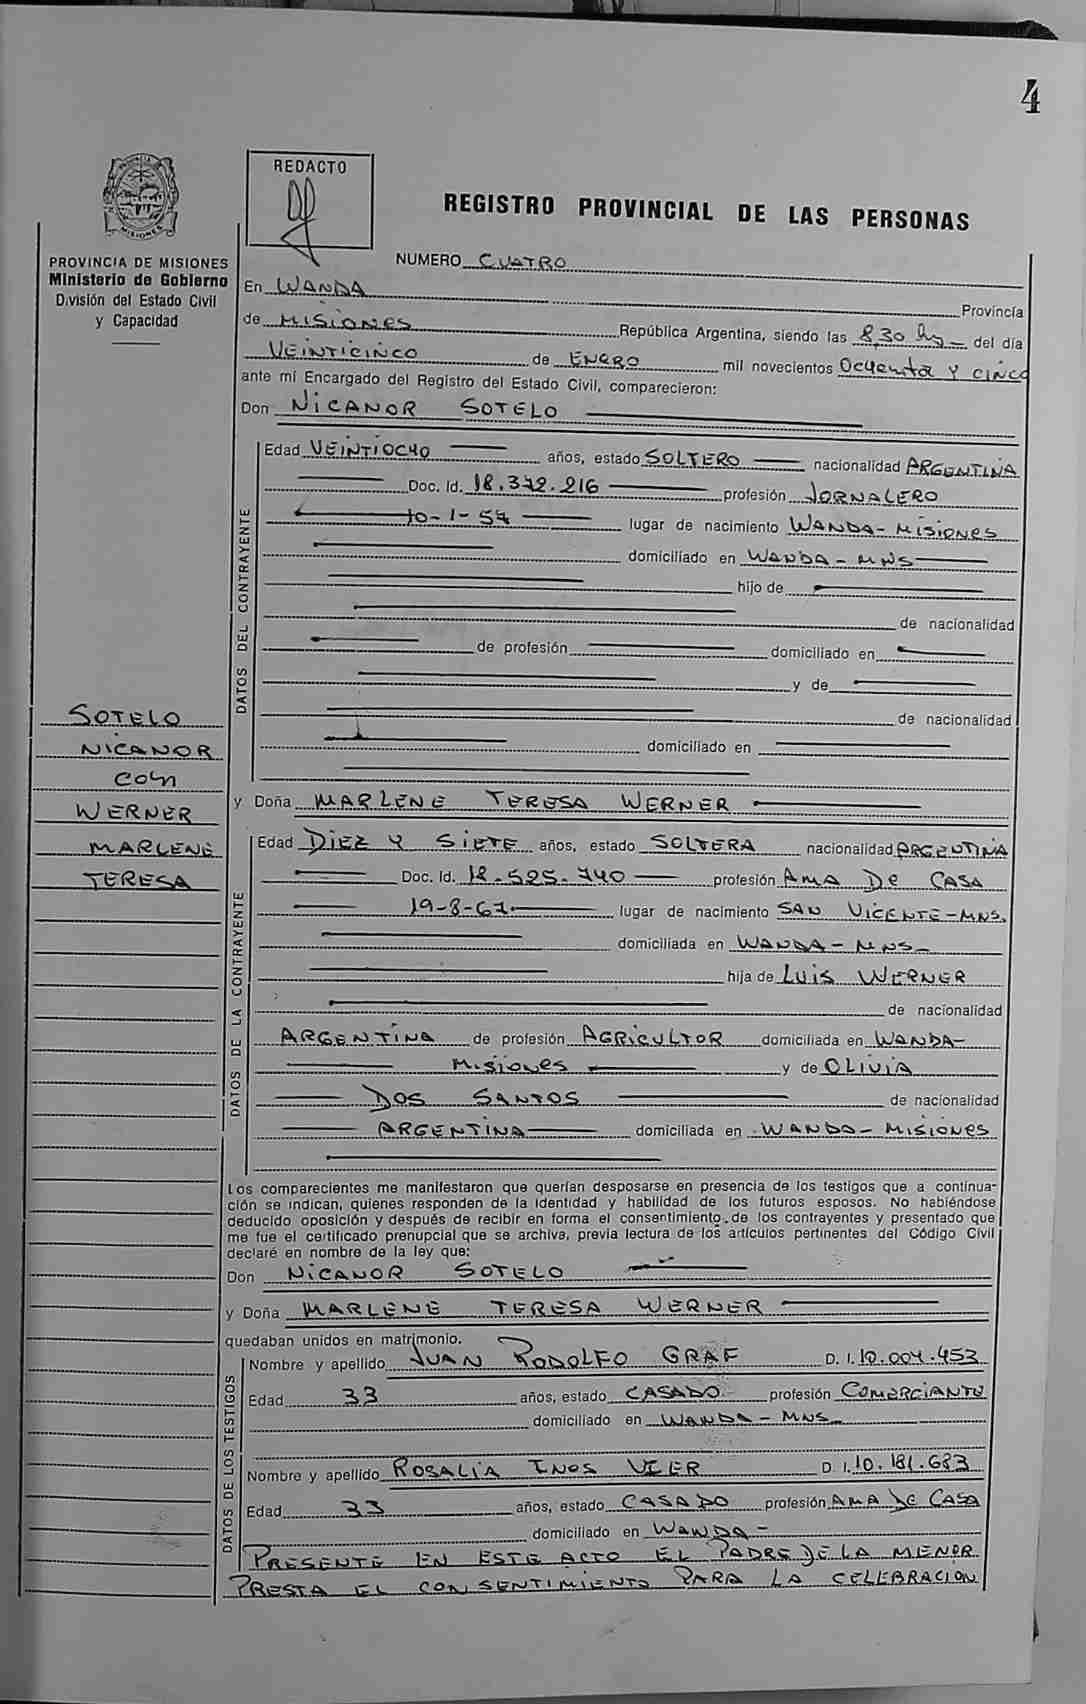 4
REDACTO
REGISTRO PROVINCIAL DE LAS PERSONAS
PROVINCIA DE MISIONES
Ministerio de Gobierno
División del Estado Civil
y Capacidad
NUMERO CUATRO
En WANDA Provincia
de MISIONES República Argentina, siendo las 8,30 hs del día
VEINTICINCO de ENERO mil novecientos OCHENTA Y CINCO
ante mi Encargado del Registro del Estado Civil, comparecieron:
Don NICANOR SOTELO
DATOS DEL CONTRAYENTE
Edad VEINTIOCHO años, estado SOLTERO nacionalidad ARGENTINA
Doc. Id. 18.372.216 profesión JORNALERO
10-1-57 lugar de nacimiento WANDA - MISIONES
domiciliado en WANDA - MNS
hijo de
de nacionalidad
de profesión domiciliado en
y de
de nacionalidad
domiciliado en
SOTELO
NICANOR
CON
WERNER
MARLENE
TERESA
y Doña MARLENE TERESA WERNER
DATOS DE LA CONTRAYENTE
Edad DIEZ Y SIETE años, estado SOLTERA nacionalidad ARGENTINA
Doc. Id. 18.525.740 profesión AMA DE CASA
19-8-67 lugar de nacimiento SAN VICENTE - MNS.
domiciliada en WANDA - MNS
hija de LUIS WERNER
de nacionalidad
ARGENTINA de profesión AGRICULTOR domiciliada en WANDA-
MISIONES y de OLIVIA
DOS SANTOS de nacionalidad
ARGENTINA domiciliada en WANDA - MISIONES
Los comparecientes me manifestaron que querían desposarse en presencia de los testigos que a continua-
ción se indican, quienes responden de la identidad y habilidad de los futuros esposos. No habiéndose
deducido oposición y después de recibir en forma el consentimiento de los contrayentes y presentado que
me fue el certificado prenupcial que se archiva, previa lectura de los artículos pertinentes del Código Civil
declaré en nombre de la ley que:
Don NICANOR SOTELO
y Doña MARLENE TERESA WERNER
quedaban unidos en matrimonio.
DATOS DE LOS TESTIGOS
Nombre y apellido JUAN RODOLFO GRAF D. I. 10.004.453
Edad 33 años, estado CASADO profesión COMERCIANTE
domiciliado en WANDA - MNS
Nombre y apellido ROSALIA INOS VIER D. I. 10.181.683
Edad 33 años, estado CASADO profesión AMA DE CASA
domiciliado en WANDA -
PRESENTE EN ESTE ACTO EL PADRE DE LA MENOR
PRESTA EL CONSENTIMIENTO PARA LA CELEBRACION